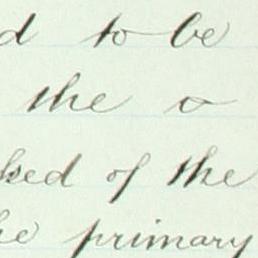 d to be
the o
ked of the
he primary